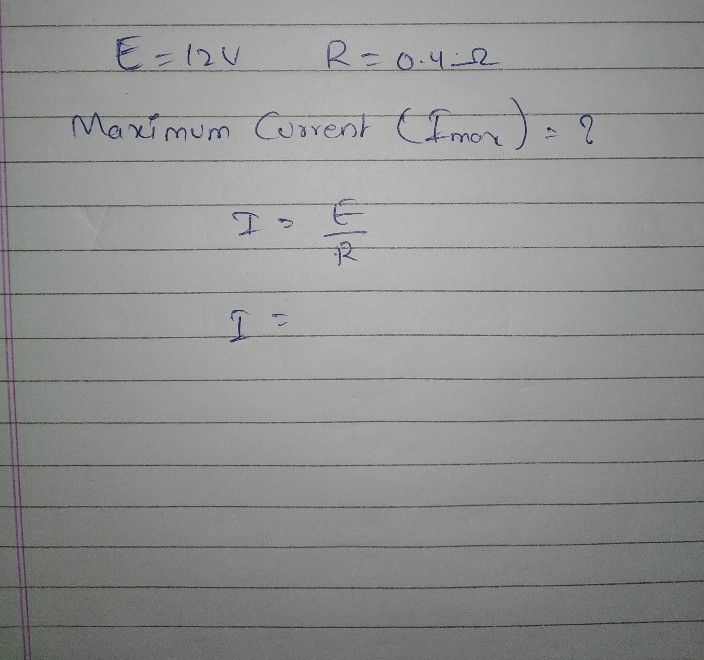 E = 12V R = 0.4 Ω
Maximum Current (Imax) = ?
I = E/R
I =